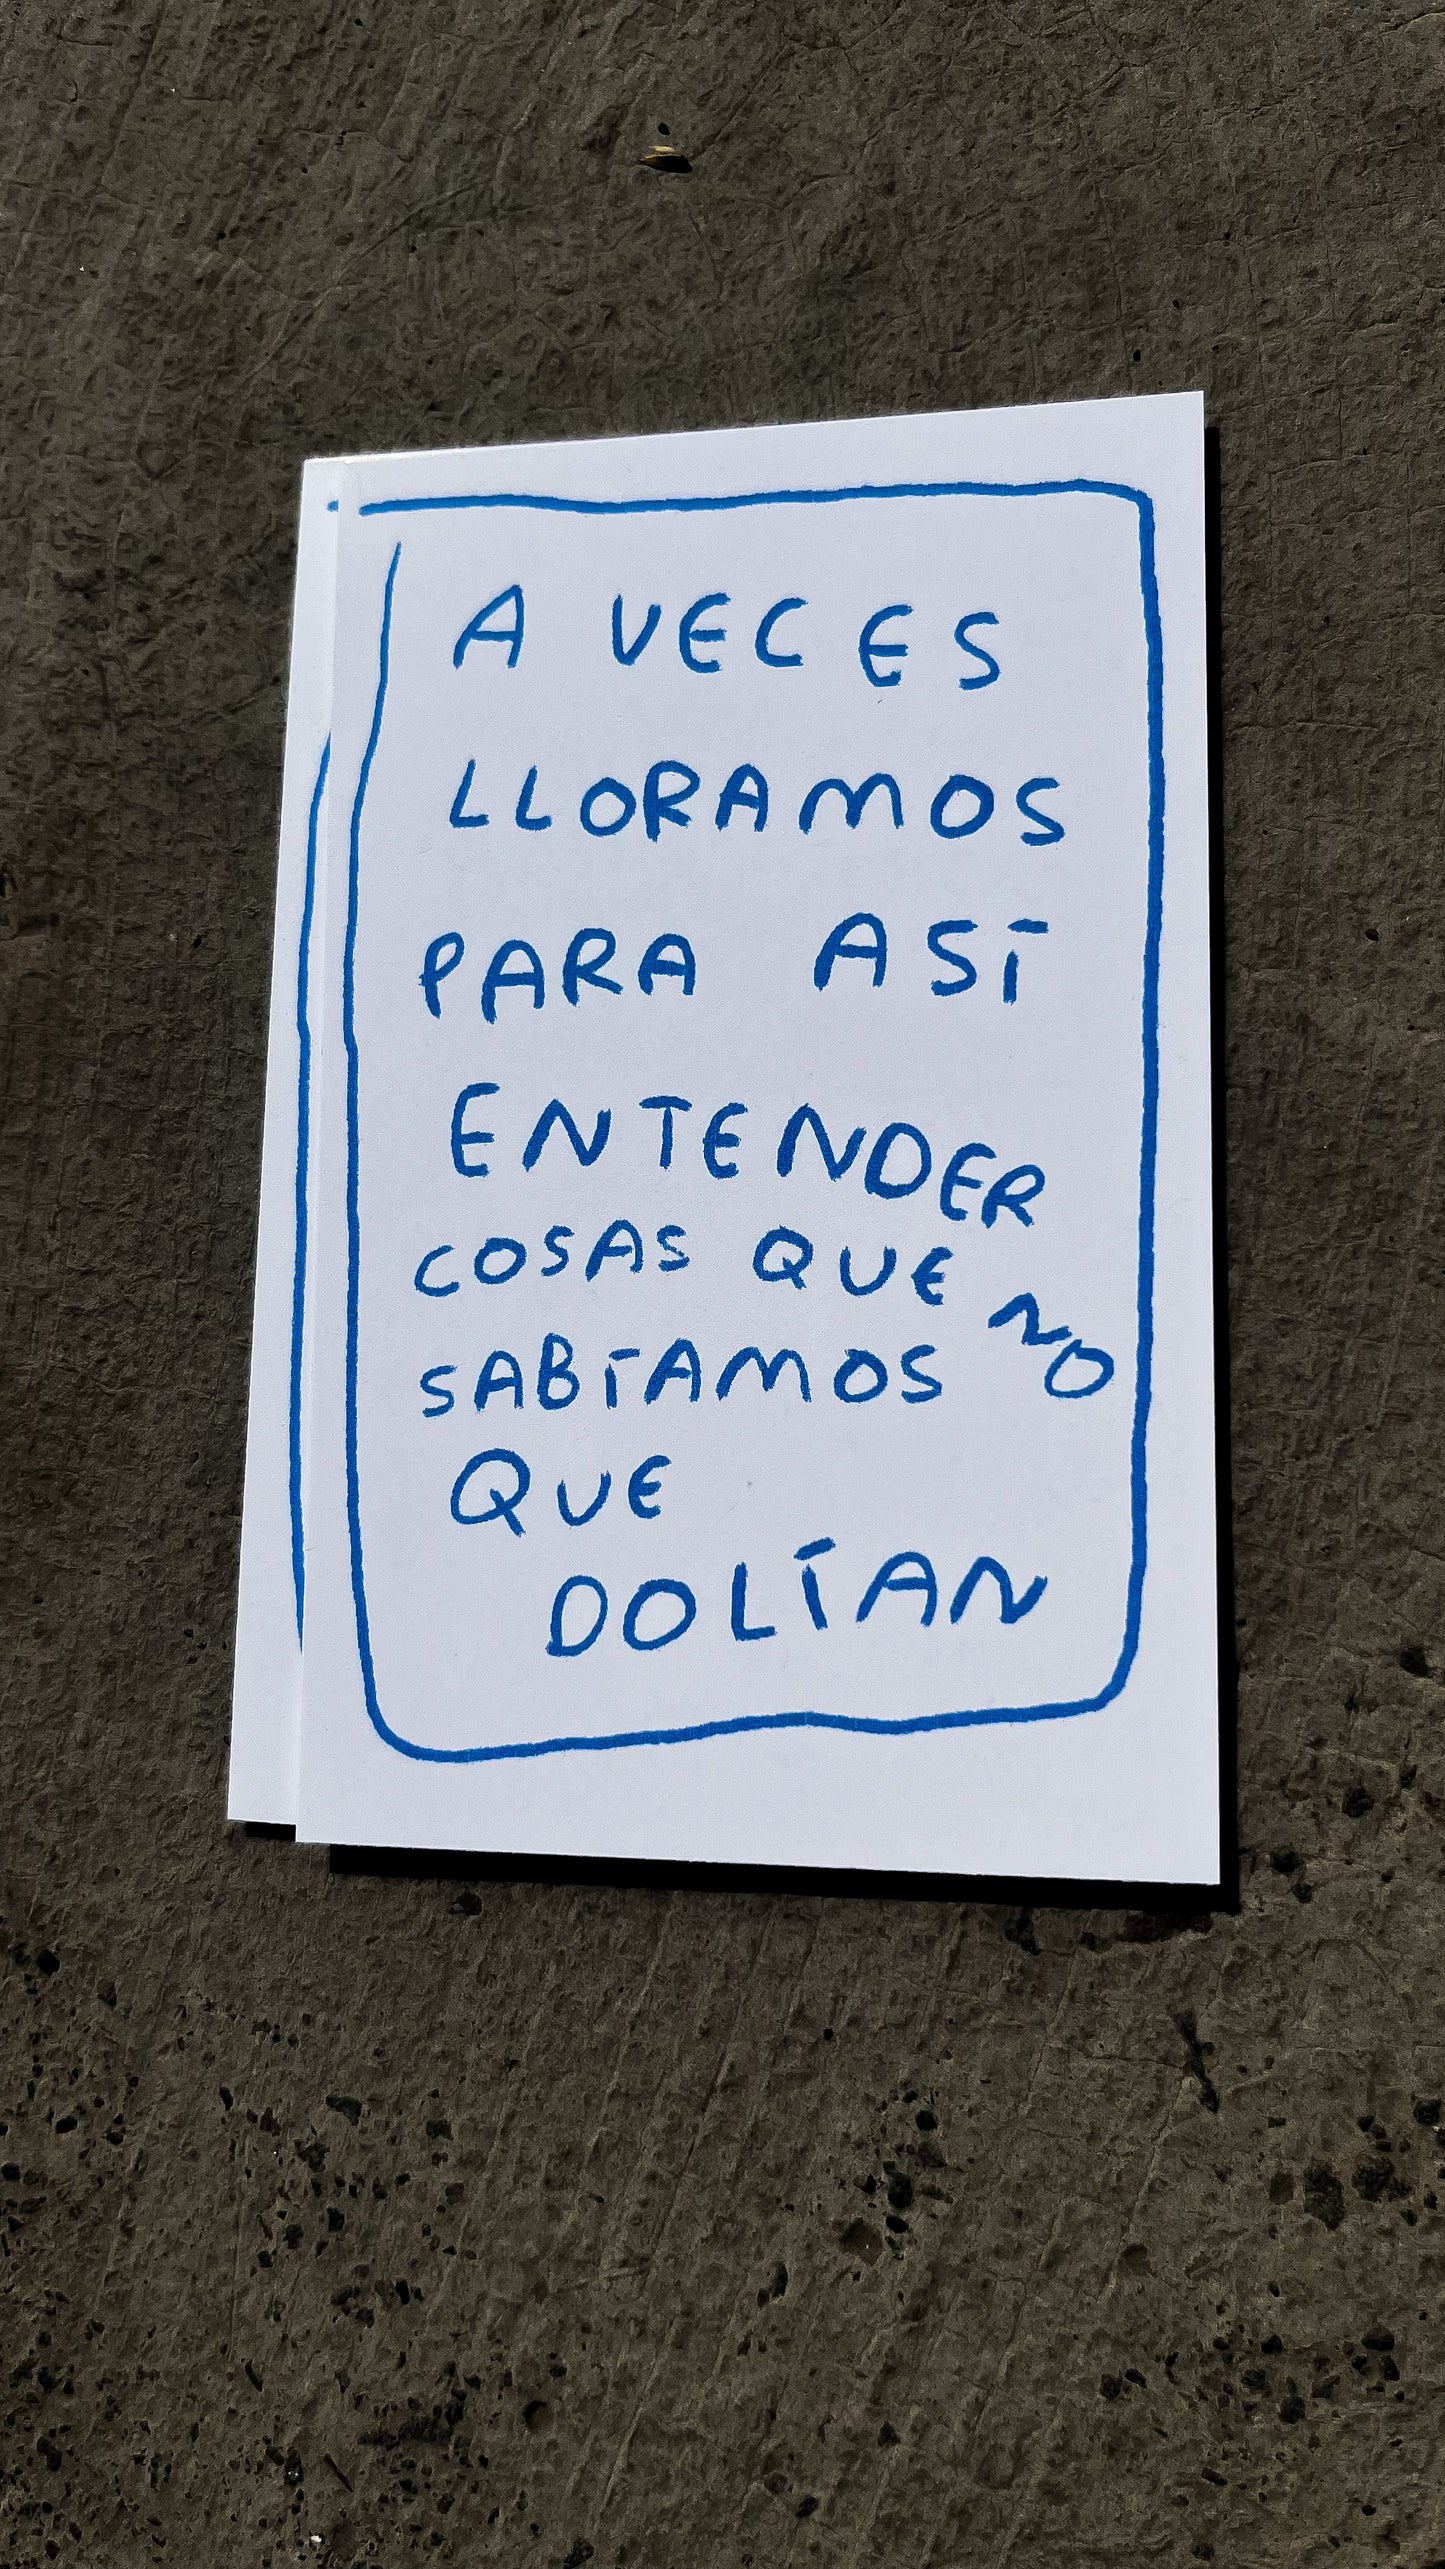 A VECES
LLORAMOS
PARA ASÍ
ENTENDER
COSAS QUE NO
SABÍAMOS
QUE
DOLÍAN